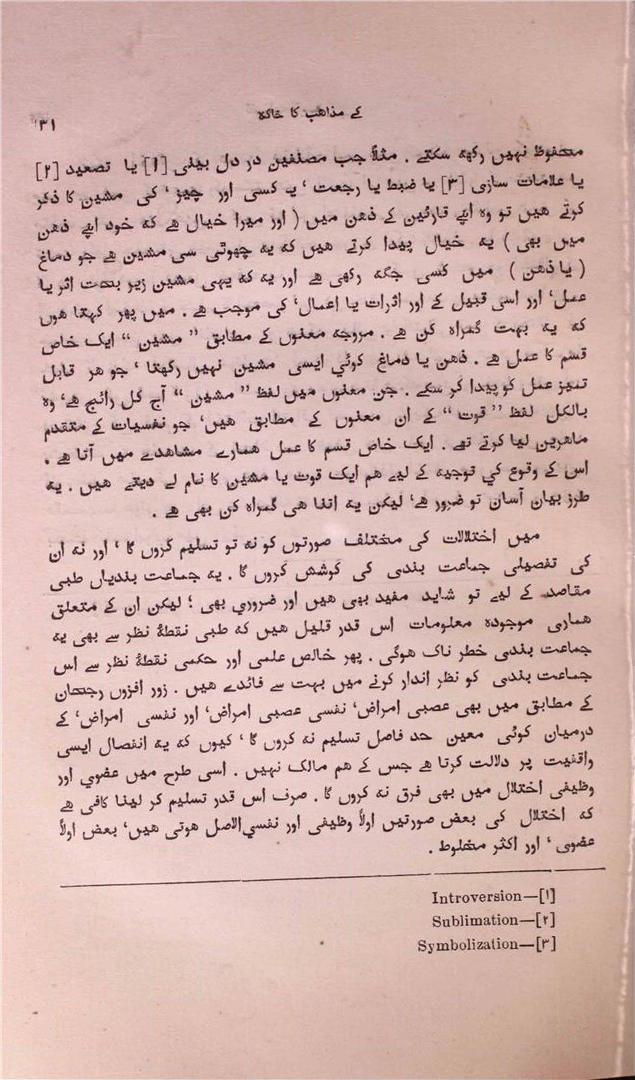 کے مذاهب کا خاکہ
۳۱
محفوظ نہیں رکھہ سکتے ۔ مثلاً جب مصنفین در دل بینی [۱] یا تصعید [۲]
یا علامات سازی [۳] یا ضبط یا رجعت ، یہ کسی اور چیز ، کی مشین کا ذکر
کرتے ھیں تو وہ اپنے قارئین کے ذھن میں ( اور میرا خیال ھے کہ خود اپنے ذھن
میں بھی ) یہ خیال پیدا کرتے ھیں کہ یہ چھوٹی سی مشین ھے جو دماغ
( یا ذھن ) میں کسی جگہ رکھی ھے اور یہ کہ یہی مشین زیر بحث اثر یا
عمل، اور اسی قبیل کے اور اثرات یا اعمال، کی موجب ھے ۔ میں پھر کہتا ھوں
کہ یہ بہت گمراہ کن ھے ۔ مروجہ معنوں کے مطابق ” مشین “ ایک خاص
قسم کا عمل ھے ۔ ذھن یا دماغ کوئي ایسی مشین نہیں رکھتا ، جو ھر قابل
تمیز عمل کو پیدا کر سکے ۔ جن معنوں میں لفظ ” مشین “ آج کل رائج ھے، وہ
بالکل لفظ ” قوت “ کے ان معنوں کے مطابق ھیں، جو نفسیات کے متقدم
ماھرین لیا کرتے تھے ۔ ایک خاص قسم کا عمل ھمارے مشاھدے میں آتا ھے ۔
اس کے وقوع کي توجیہ کے لیے ھم ایک قوت یا مشین کا نام لے دیتے ھیں ۔ یہ
طرز بیان آسان تو ضرور ھے، لیکن یہ اتنا ھی گمراہ کن بھی ھے ۔
میں اختلالات کی مختلف صورتوں کو نہ تو تسلیم کروں گا ، اور نہ ان
کی تفصیلی جماعت بندی کی کوشش کروں گا ۔ یہ جماعت بندیاں طبی
مقاصد کے لیے تو شاید مفید بھی ھیں اور ضروري بھی ؛ لیکن ان کے متعلق
ھماری موجودہ معلومات اس قدر قلیل ھیں کہ طبی نقطۂ نظر سے بھی یہ
جماعت بندی خطر ناک ھوگی ۔ پھر خالص علمی اور حکمی نقطۂ نظر سے اس
جماعت بندی کو نظر اندار کرنے میں بہت سے فائدے ھیں ۔ زور افزوں رجحان
کے مطابق میں بھی عصبی امراض، نفسی عصبی امراض، اور نفسی امراض، کے
درمیان کوئی معین حد فاصل تسلیم نہ کروں گا ، کیوں کہ یہ انفصال ایسی
واقفیت پر دلالت کرتا ھے جس کے ھم مالک نہیں ۔ اسی طرح میں عضوي اور
وظیفی اختلال میں بھی فرق نہ کروں گا ۔ صرف اس قدر تسلیم کر لینا کافی ھے
کہ اختلال کی بعض صورتیں اولاً وظیفی اور نفسي الاصل ھوتی ھیں، بعض اولاً
عضوی ، اور اکثر مخلوط ۔
Introversion—[۱]
Sublimation—[۲]
Symbolization—[۳]